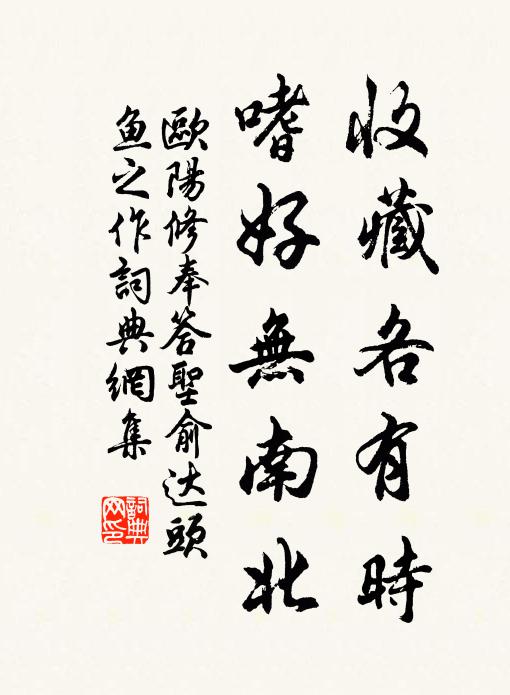 收藏各有時
嗜好無南北
歐陽修奉答聖俞达頭
鱼之作詞典網集
詞典
网印